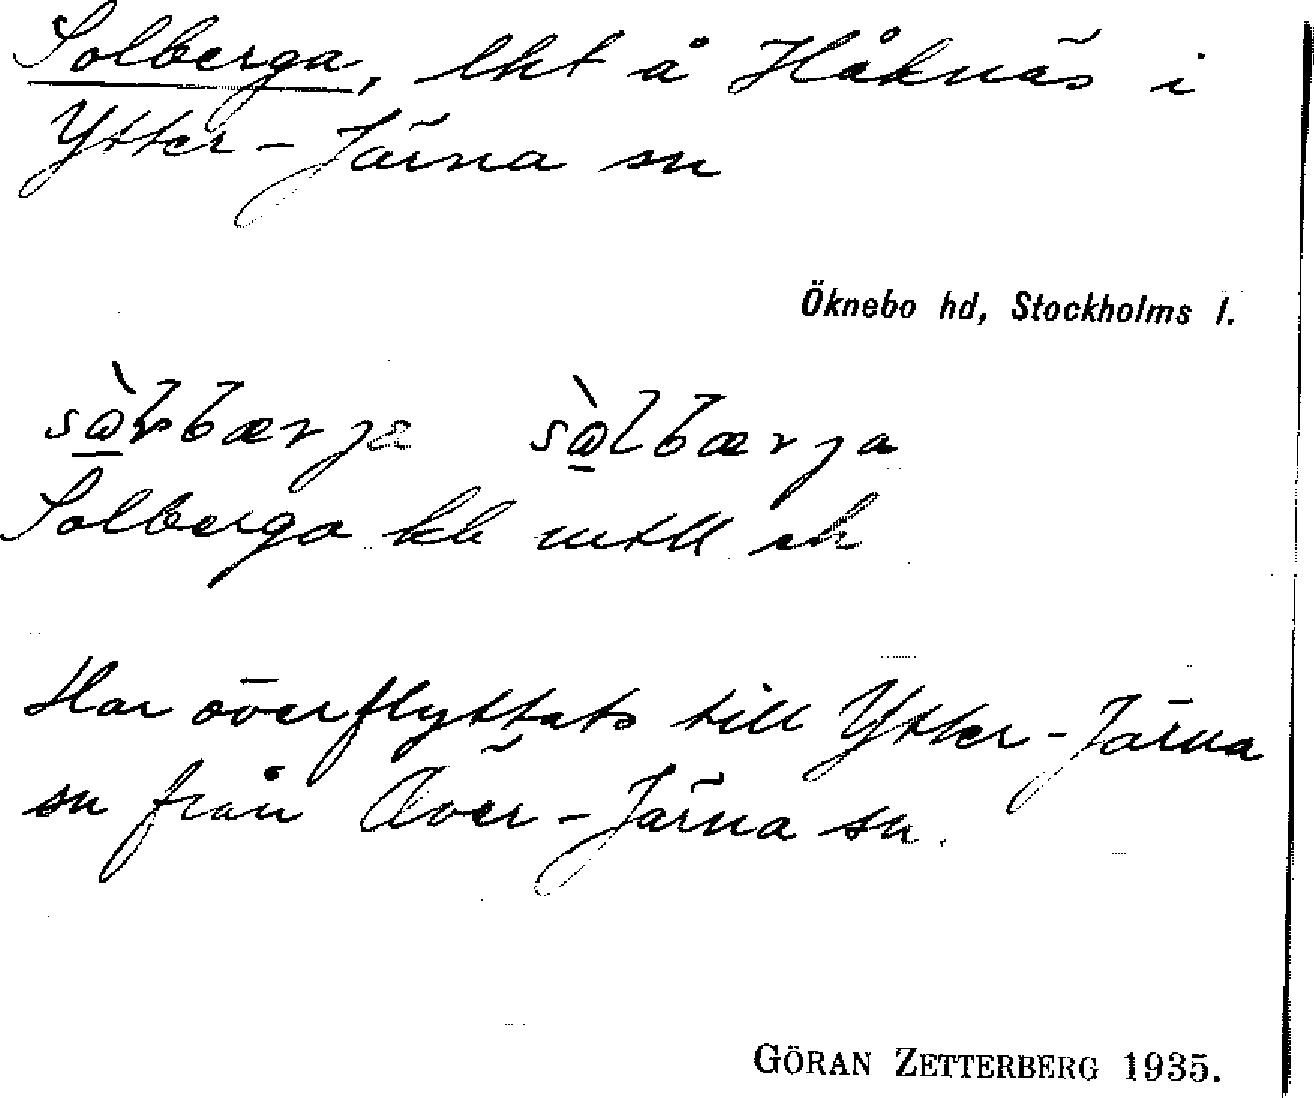 Solberga, lht å Håknäs i
Ytter-Järna sn
Öknebo hd, Stockholms l.
Solberga kb mtll ek
Har överflyttats till Ytter-Järna
sn från Över-Järna sn.
GÖRAN ZETTERBERG 1935.